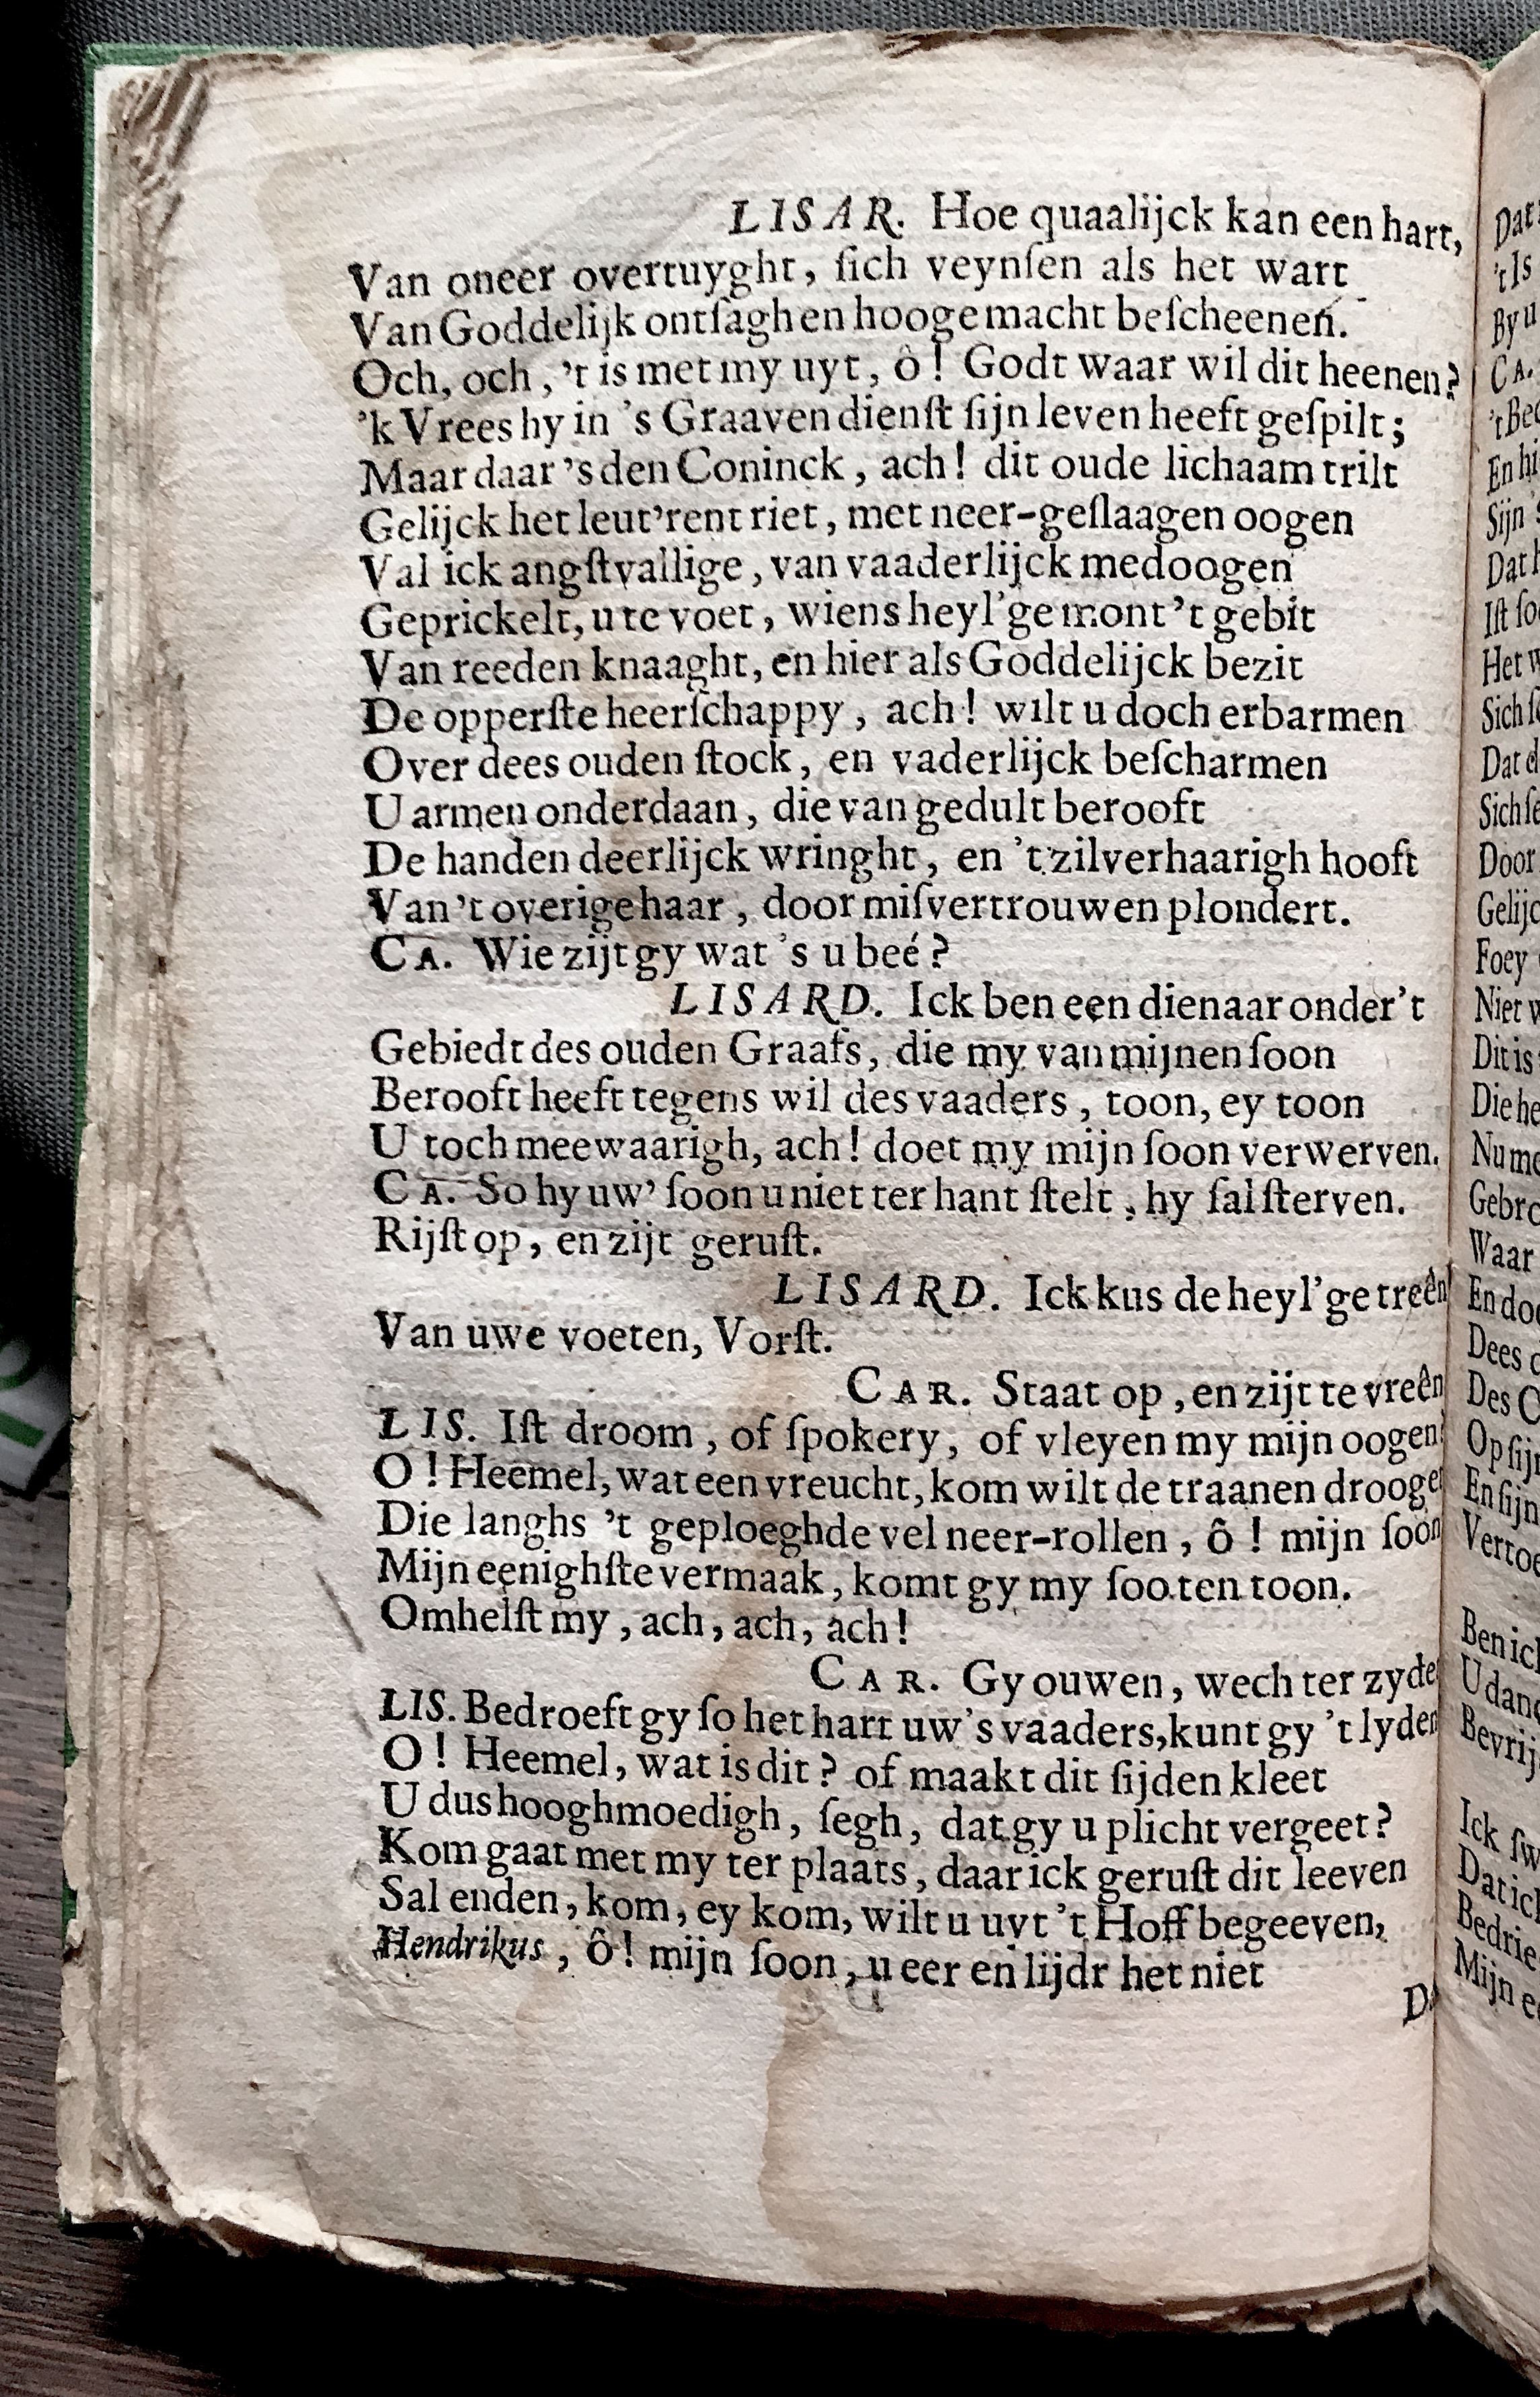 LISAR. Hoe quaalijck kan een hart,
Van oneer overtuyght, ſich veynſen als het wart
Van Goddelijk ontſagh en hooge macht beſcheenen.
Och, och, 't is met my uyt, ô! Godt waar wil dit heenen?
'k Vrees hy in 's Graaven dienſt ſijn leven heeft geſpilt;
Maar daar 's den Coninck, ach! dit oude lichaam trilt
Gelijck het leut'rent riet, met neer-geſlaagen oogen
Val ick angſtvallige, van vaaderlijck medoogen
Geprickelt, u te voet, wiens heyl'ge mont 't gebit
Van reeden knaaght, en hier als Goddelijck bezit
De opperſte heerſchappy, ach! wilt u doch erbarmen
Over dees ouden ſtock, en vaderlijck beſcharmen
U armen onderdaan, die van gedult berooft
De handen deerlijck wringht, en 't zilverhaarigh hooft
Van 't overige haar, door miſvertrouwen plondert.
CA. Wie zijt gy wat 's u beé?
LISARD. Ick ben een dienaar onder 't
Gebiedt des ouden Graafs, die my van mijnen ſoon
Berooft heeft tegens wil des vaaders, toon, ey toon
U toch meewaarigh, ach! doet my mijn ſoon verwerven.
CA. So hy uw' ſoon u niet ter hant ſtelt, hy ſal ſterven.
Rijſt op, en zijt geruſt.
LISARD. Ick kus de heyl'ge treên
Van uwe voeten, Vorſt.
CAR. Staat op, en zijt te vreên
LIS. Iſt droom, of ſpokery, of vleyen my mijn oogen?
O! Heemel, wat een vreucht, kom wilt de traanen drooge
Die langhs 't geploeghde vel neer-rollen, ô! mijn ſoon
Mijn eenighſte vermaak, komt gy my ſoo ten toon.
Omhelſt my, ach, ach, ach!
CAR. Gy ouwen, wech ter zyde
LIS. Bedroeft gy ſo het hart uw's vaaders, kunt gy 't lyden
O! Heemel, wat is dit? of maakt dit ſijden kleet
U dus hooghmoedigh, ſegh, dat gy u plicht vergeet?
Kom gaat met my ter plaats, daar ick geruſt dit leeven
Sal enden, kom, ey kom, wilt u uyt 't Hoff begeeven,
Hendrikus, ô! mijn ſoon, u eer en lijdt het niet
Dat
't Is
By u
CA.
't Be
En hi
Sijn
Dat
Iſt ſo
Het
Sich
Dat
Sich
Door
Gelijc
Foey
Niet
Dit is
Die he
Nu
Gebro
Waar
En
Dees
Des C
Op ſij
En ſijn
Vertoe
Ben ick
U danc
Bevrij
Ick ſw
Dat ick
Bedrie
Mijn